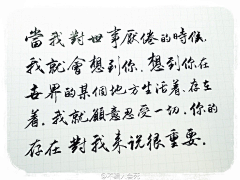 當我對世事厭倦的時候,
我就會想到你.想到你在
世界的某個地方生活着.存在
着.我就願意忍受一切.你的
存在對我来说很重要.